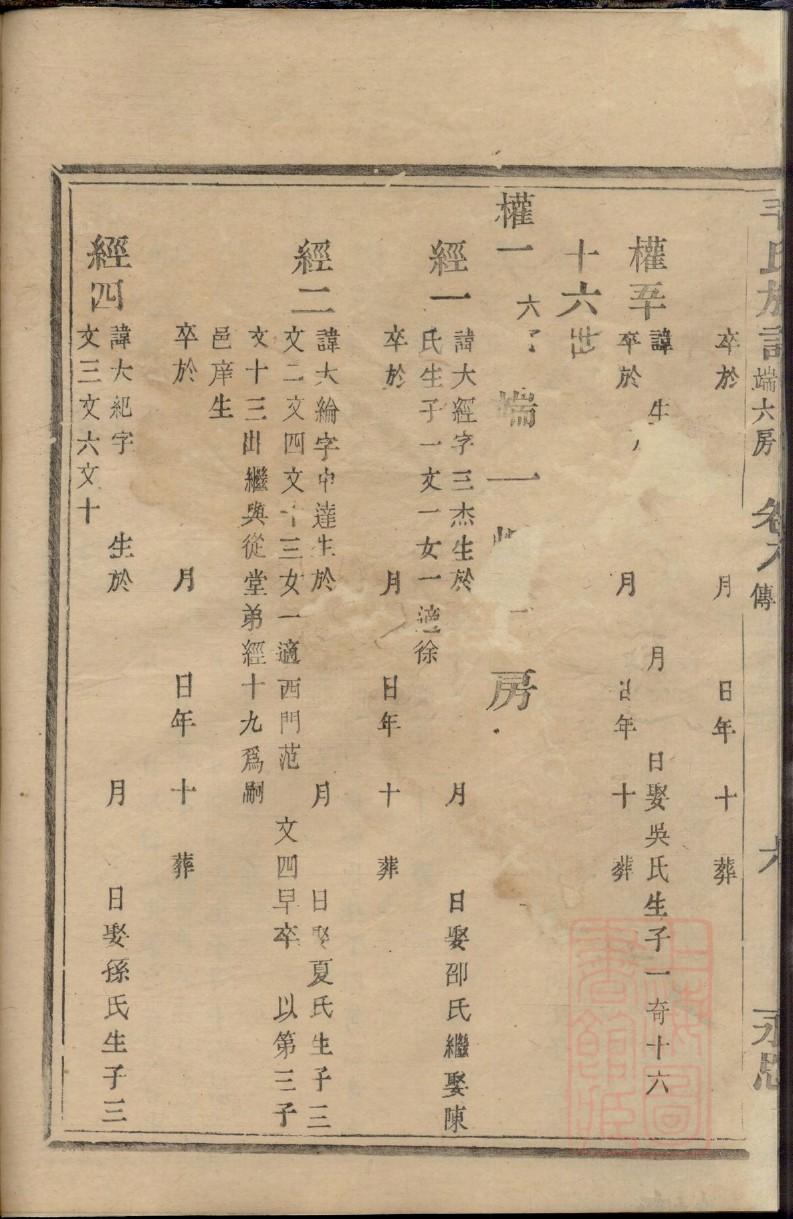 氏族譜 端六房 卷六 傳 六 永思
卒於 月 日年 十 葬
權五 諱 生 月 日娶吳氏生子一奇十六
卒於 月 日年 十 葬
十六世
權一 六 端一 房
經一 諱大經字三杰生於 月 日娶邵氏繼娶陳
氏生子一文一女一適徐
卒於 月 日年 十 葬
經二 諱大綸字中達生於 月 日娶夏氏生子三
文二文四文十三女一適西門范 文四早卒 以第三子
文十三出繼與從堂弟經十九爲嗣
邑庠生
卒於 月 日年 十 葬
經四 諱大紀字 生於 月 日娶孫氏生子三
文三文六文十